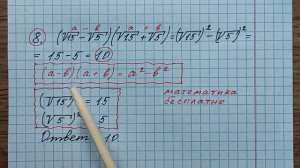 a b a b
⑧ (√15 - √5)(√15 + √5) = (√15)² - (√5)² =
= 15 - 5 = 10
(a - b)(a + b) = a² - b²
(√15)² = 15
(√5)² 5
математика
бесплатно
Ответ 10